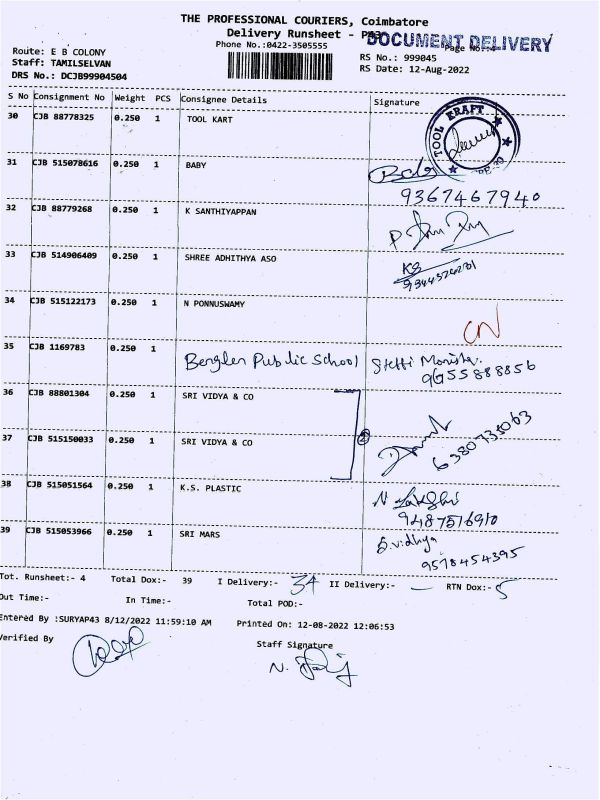 THE PROFESSIONAL COURIERS, Coimbatore
Delivery Runsheet - P43
DOCUMENT DELIVERY
Phone No.:0422-3505555
Page No.:4
Route: E B COLONY
RS No.: 999045
Staff: TAMILSELVAN
RS Date: 12-Aug-2022
DRS No.: DCJB99904504
S No Consignment No Weight PCS Consignee Details Signature
30 CJB 88778325 0.250 1 TOOL KART
TOOL KRAFT
31 CJB 515078616 0.250 1 BABY
9367467940
32 CJB 88779268 0.250 1 K SANTHIYAPPAN
33 CJB 514906409 0.250 1 SHREE ADHITHYA ASO
34 CJB 515122173 0.250 1 N PONNUSWAMY
CN
35 CJB 1169783 0.250 1 Public School
9655888856
36 CJB 88801304 0.250 1 SRI VIDYA & CO
37 CJB 515150033 0.250 1 SRI VIDYA & CO
2
6380735063
38 CJB 515051564 0.250 1 K.S. PLASTIC
9487516910
39 CJB 515053966 0.250 1 SRI MARS
S.vidhya
9578454395
Tot. Runsheet:- 4 Total Dox:- 39 I Delivery:- 34 II Delivery:- — RTN Dox:- 5
Out Time:- In Time:- Total POD:-
Entered By :SURYAP43 8/12/2022 11:59:10 AM Printed On: 12-08-2022 12:06:53
Verified By Staff Signature